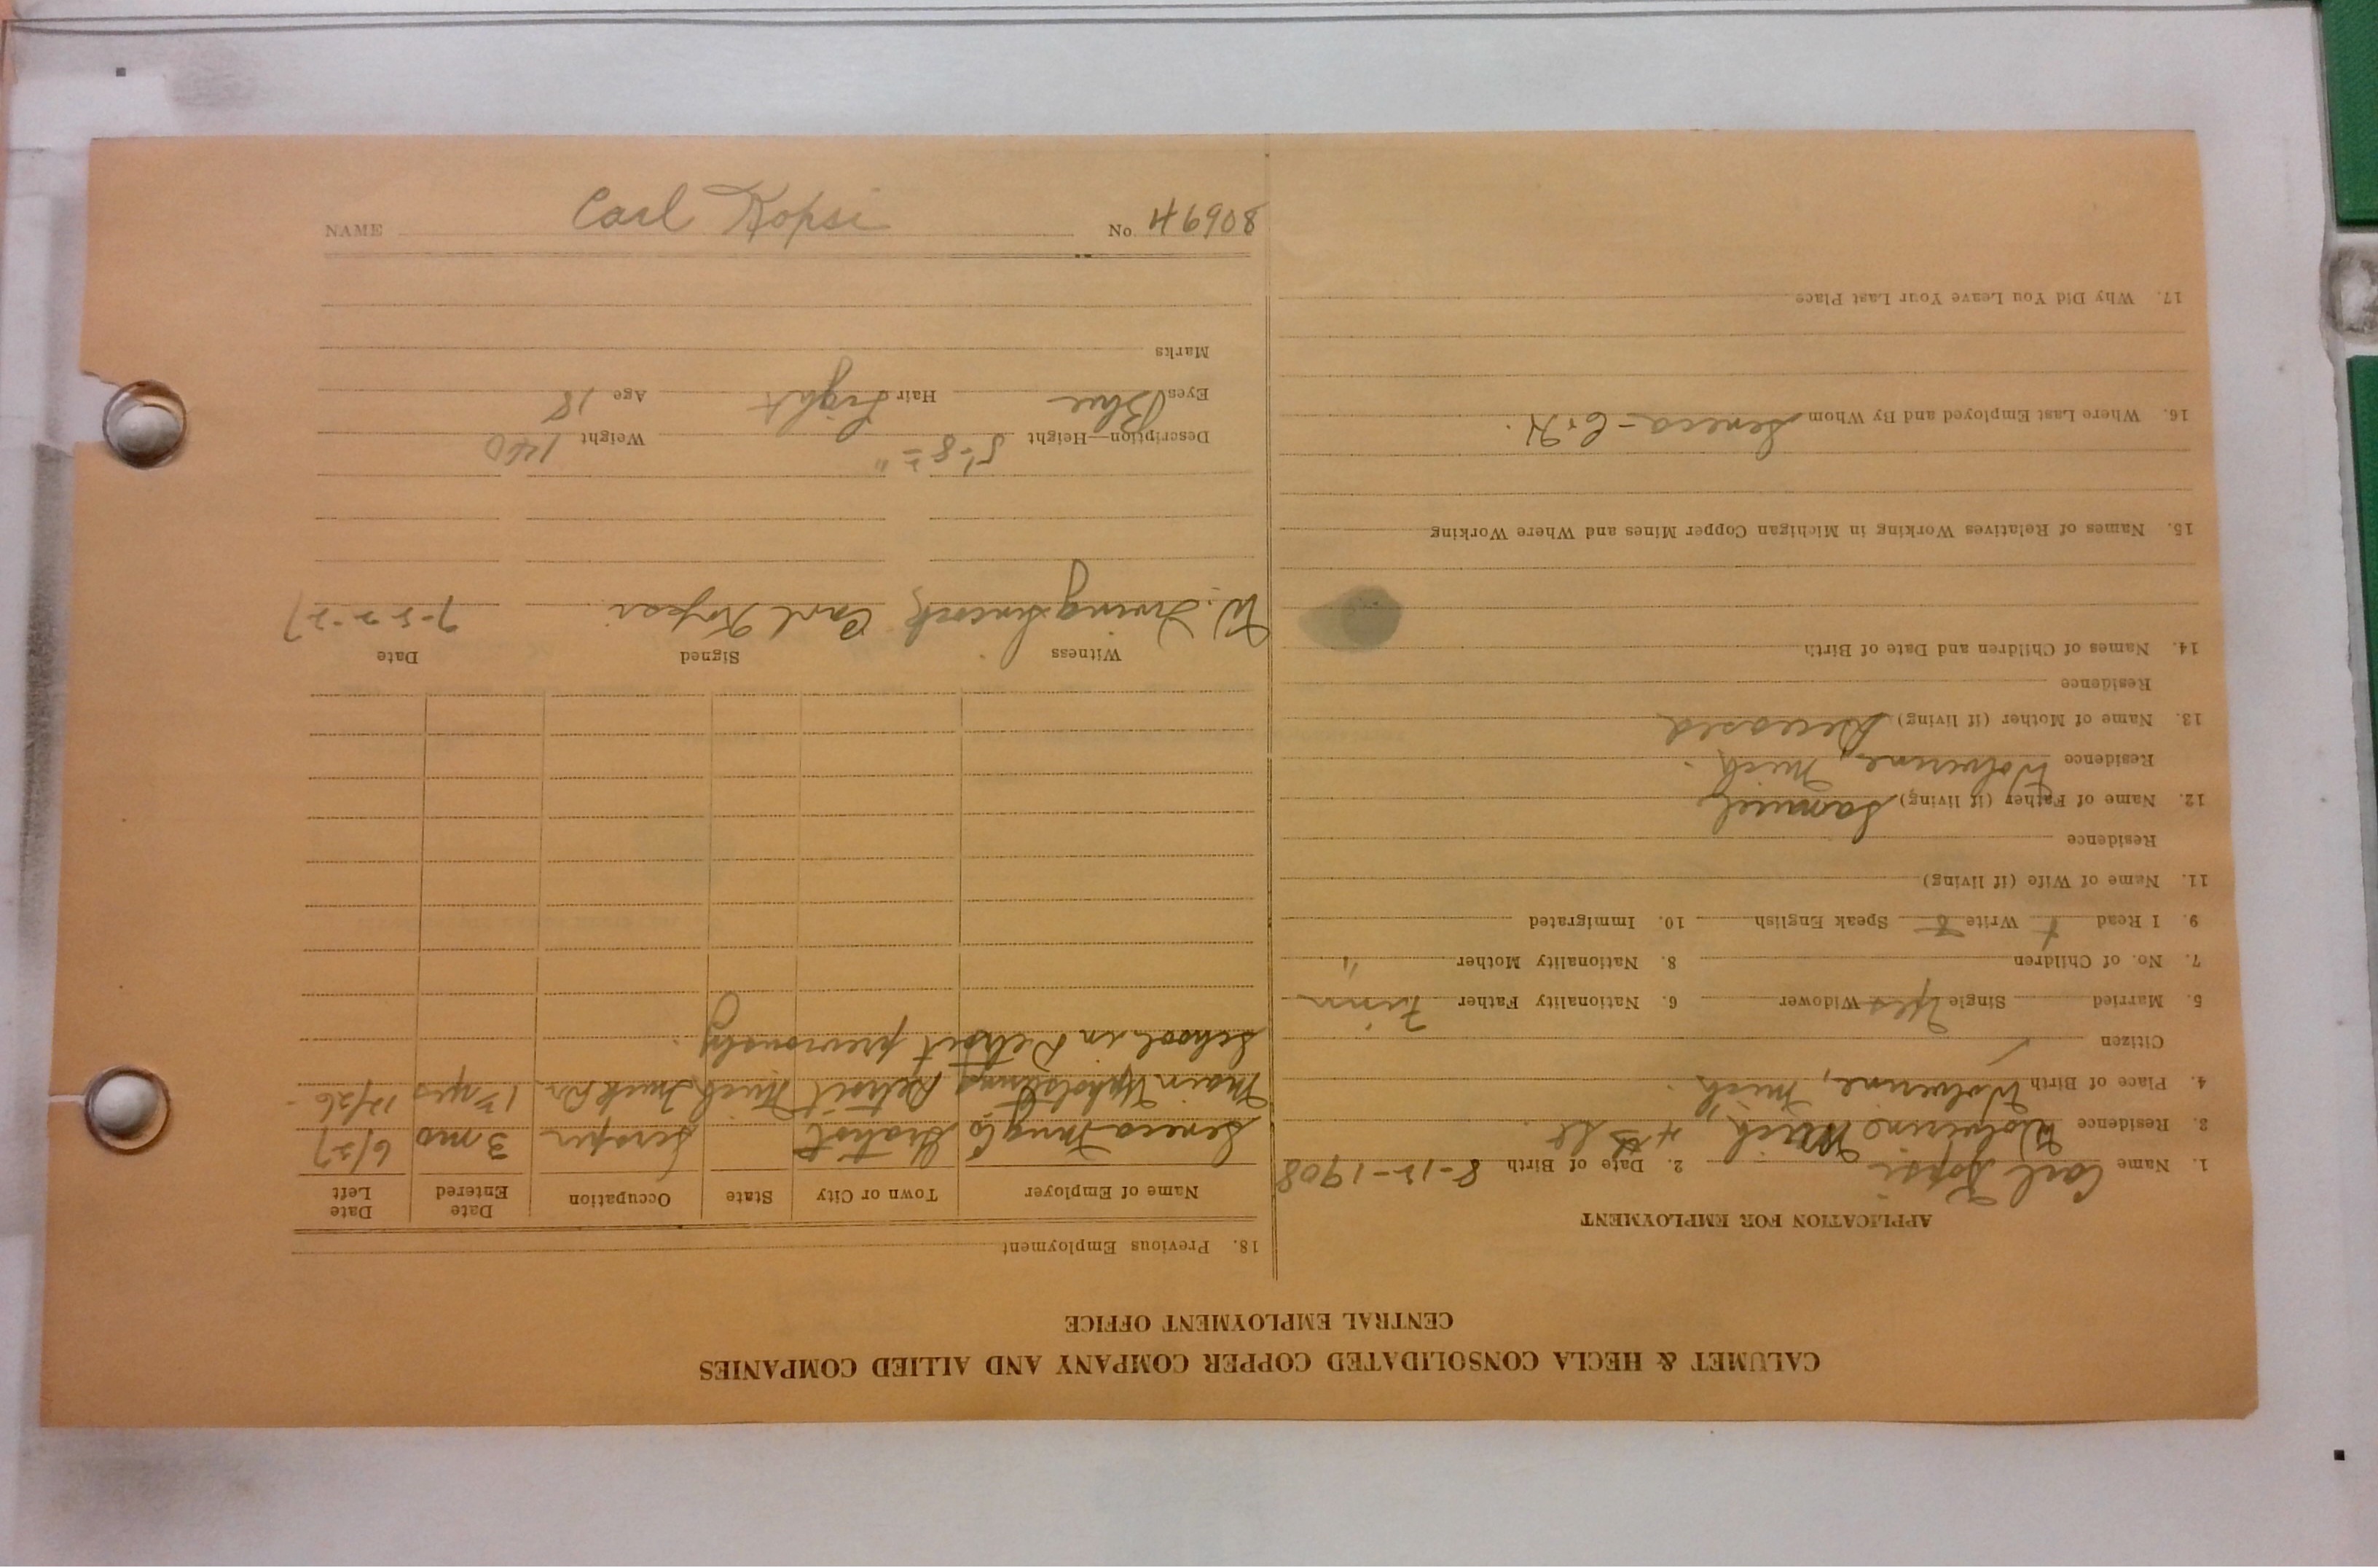 CALUMET & HECLA CONSOLIDATED COPPER COMPANY AND ALLIED COMPANIES
CENTRAL EMPLOYMENT OFFICE
APPLICATION FOR EMPLOYMENT
1. Name Carl Kopsi 2. Date of Birth 8-12-1908
3. Residence Wolverine Mich, 4th St.
4. Place of Birth Wolverine, Mich.
Citizen ✓
5. Married Single Yes Widower 6. Nationality Father Finn
7. No. of Children 8. Nationality Mother "
9. I Read Write Speak English 10. Immigrated
11. Name of Wife (if living)
Residence
12. Name of Father (if living) Samuel
Residence Wolverine, Mich.
13. Name of Mother (if living) Deceased
Residence
14. Names of Children and Date of Birth
15. Names of Relatives Working in Michigan Copper Mines and Where Working
16. Where Last Employed and By Whom Seneca - C.H.
17. Why Did You Leave Your Last Place
18. Previous Employment
Name of Employer Town or City State Occupation Date Entered Date Left
Seneca Mng Co Gratiot Scraper 3 mo 6/27
Main Upholstering Detroit Mich Truck Dr. 1 yrs 12/26
School in Detroit previously.
Witness Signed Date
W. Irving Carl Kopsi 7-5-27
Description—Height 5'-8 Weight 140
Eyes Blue Hair Light Age 18
Marks
NAME Carl Kopsi No. 46908